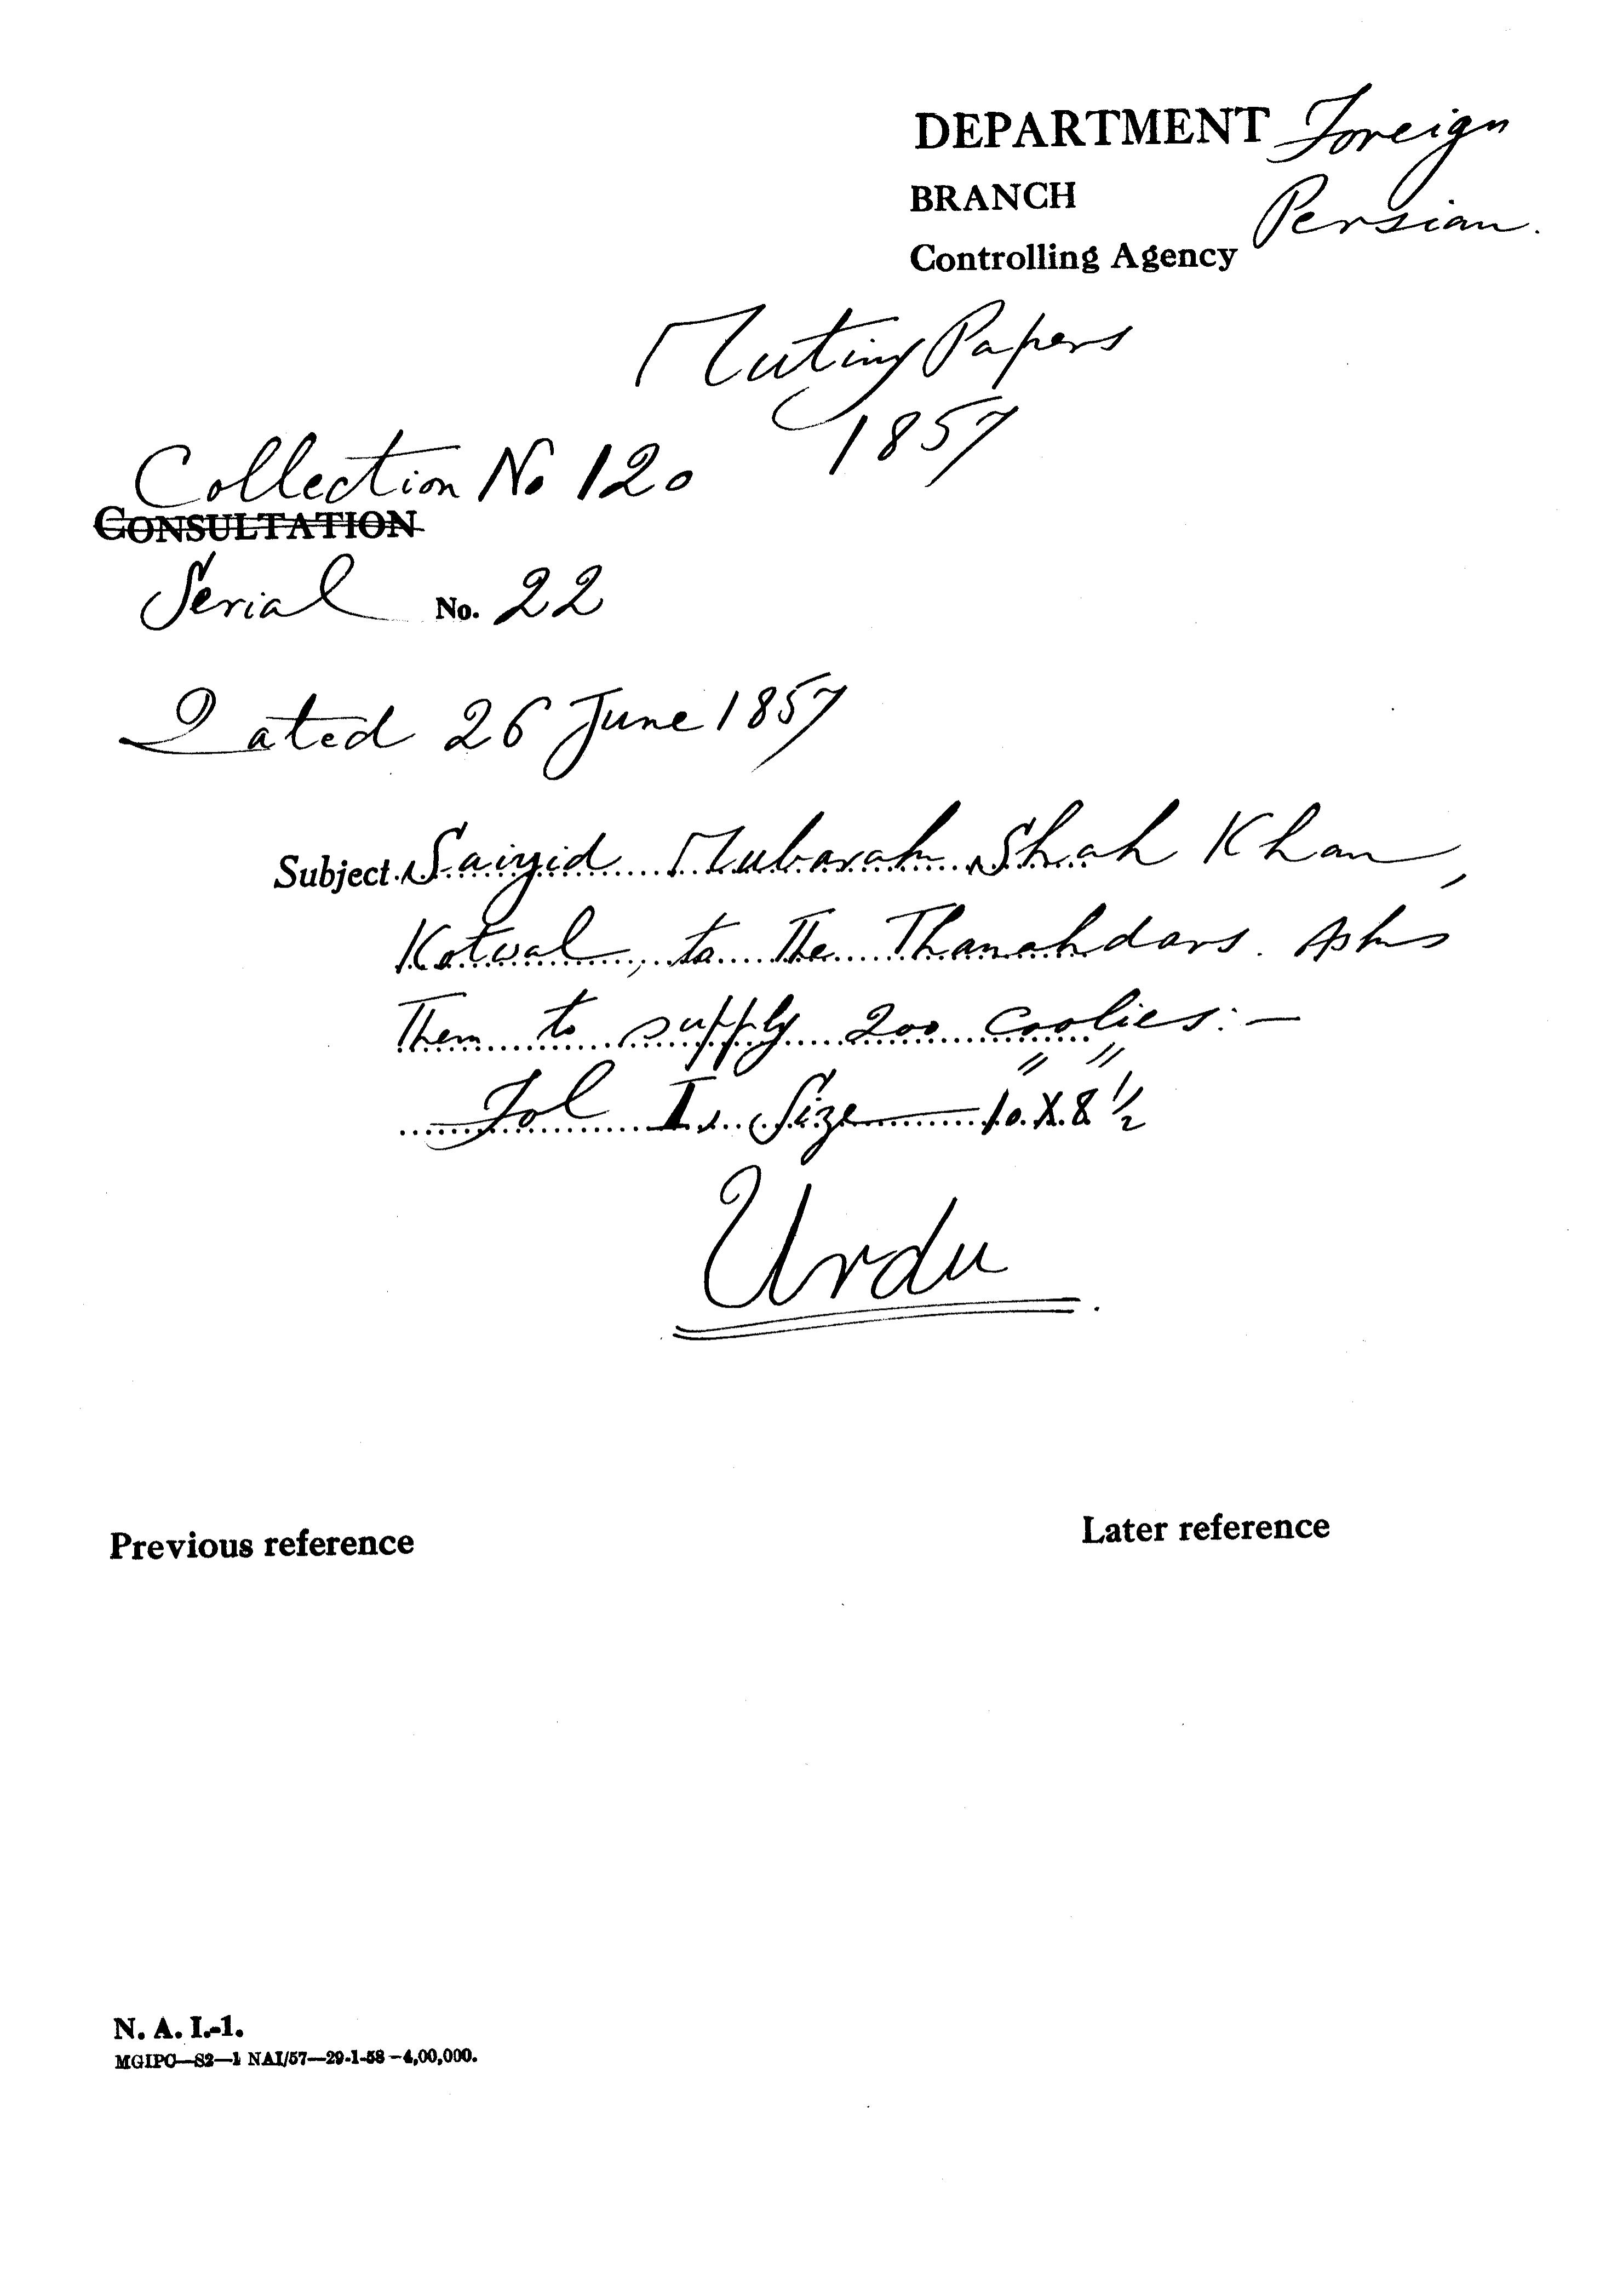 DEPARTMENT Foreign
BRANCH
Persian.
Controlling Agency
Mutiny Papers
1857
Collection No 120
CONSULTATION
Serial No. 22
Dated 26 June 1857
Subject. Saiyid Mubarak Shah Khan,
Kotwal, to the Thanahdars. Asks
Them to supply 200 coolies:—
Fol I. Size — 10" X 8 1/2"
Urdu
Previous reference
Later reference
N. A. I.-1.
MGIPC—S2—1 NAI/57—29-1-58—4,00,000.